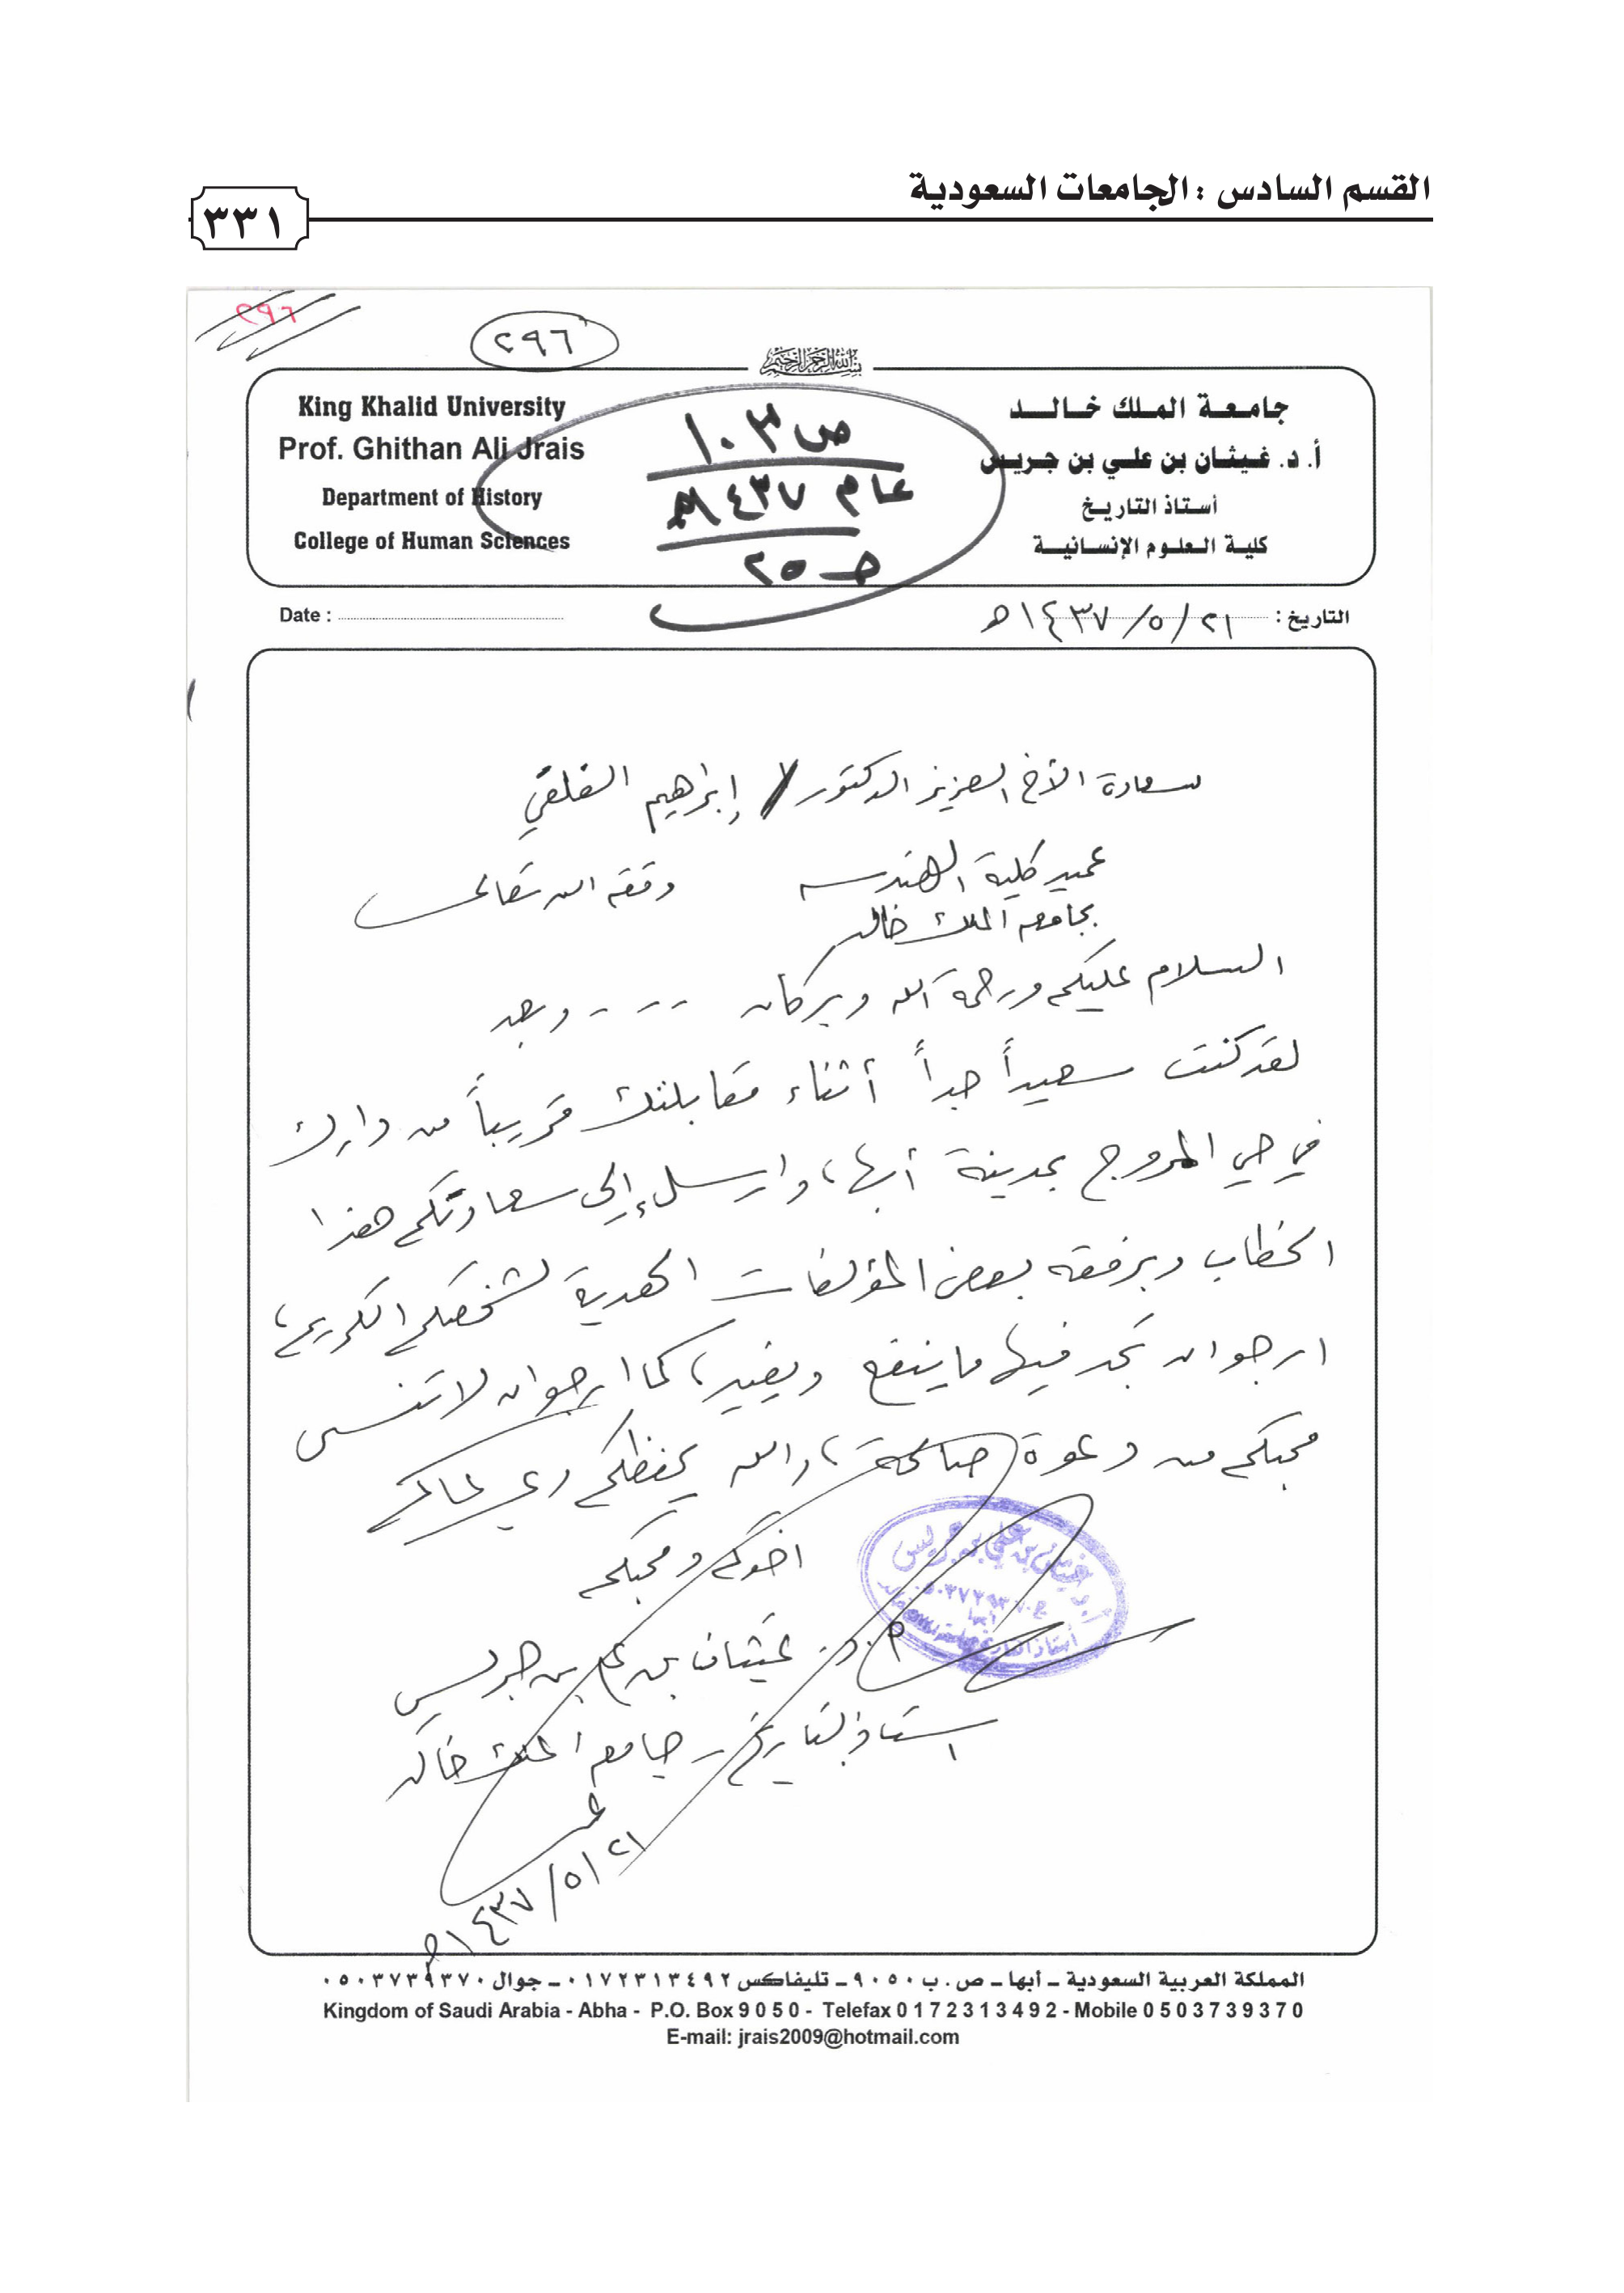 القسم السادس : الجامعات السعودية
٣٣١
٢٩٦
٢٩٦
بسم الله الرحمن الرحيم
King Khalid University
Prof. Ghithan Ali Jrais
Department of History
College of Human Sciences
ص ١٠٣
عام ١٤٣٧هـ
حـ ٢٥
جامعة الملك خالد
أ. د. غيثان بن علي بن جريس
أستاذ التاريخ
كلية العلوم الإنسانية
Date :
التاريخ : ٢١/٥/١٤٣٧هـ
سعادة الأخ العزيز الدكتور / إبراهيم الفلقي
عميد كلية الهندسة وفقه الله تعالى
بجامعة الملك خالد
السلام عليكم ورحمة الله وبركاته .... وبعد
لقد كنت سعيداً جداً أثناء مقابلتك قريباً من دارك
في حي المروج بمدينة أبها، وارسل إلى سعادتكم هذا
الخطاب وبرفقه بعض المؤلفات الهدية لشخصكم الكريم،
ارجو ان تجد فيها ما ينفع ويفيد، كما ارجو ان لا تنسى
محبكم من دعوة صالحة، والله يحفظكم ويرعاكم
اخوكم ومحبكم
أ.د. غيثان بن علي بن جريس
استاذ التاريخ - جامعة الملك خالد
٢١/٥/١٤٣٧هـ
المملكة العربية السعودية ـ أبها ـ ص . ب ٩٠٥٠ ـ تليفاكس ٠١٧٢٣١٣٤٩٢ ـ جوال ٠٥٠٣٧٣٩٣٧٠
Kingdom of Saudi Arabia - Abha - P.O. Box 9050 - Telefax 0172313492 - Mobile 0503739370
E-mail: jrais2009@hotmail.com